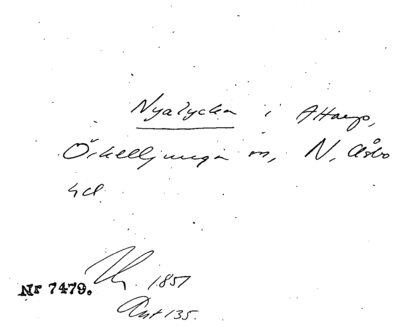 Nyalycka i Attarp,
Örkelljunga sn, N. Åsbo
hd
Nr 7479. 1851
Ant 135.